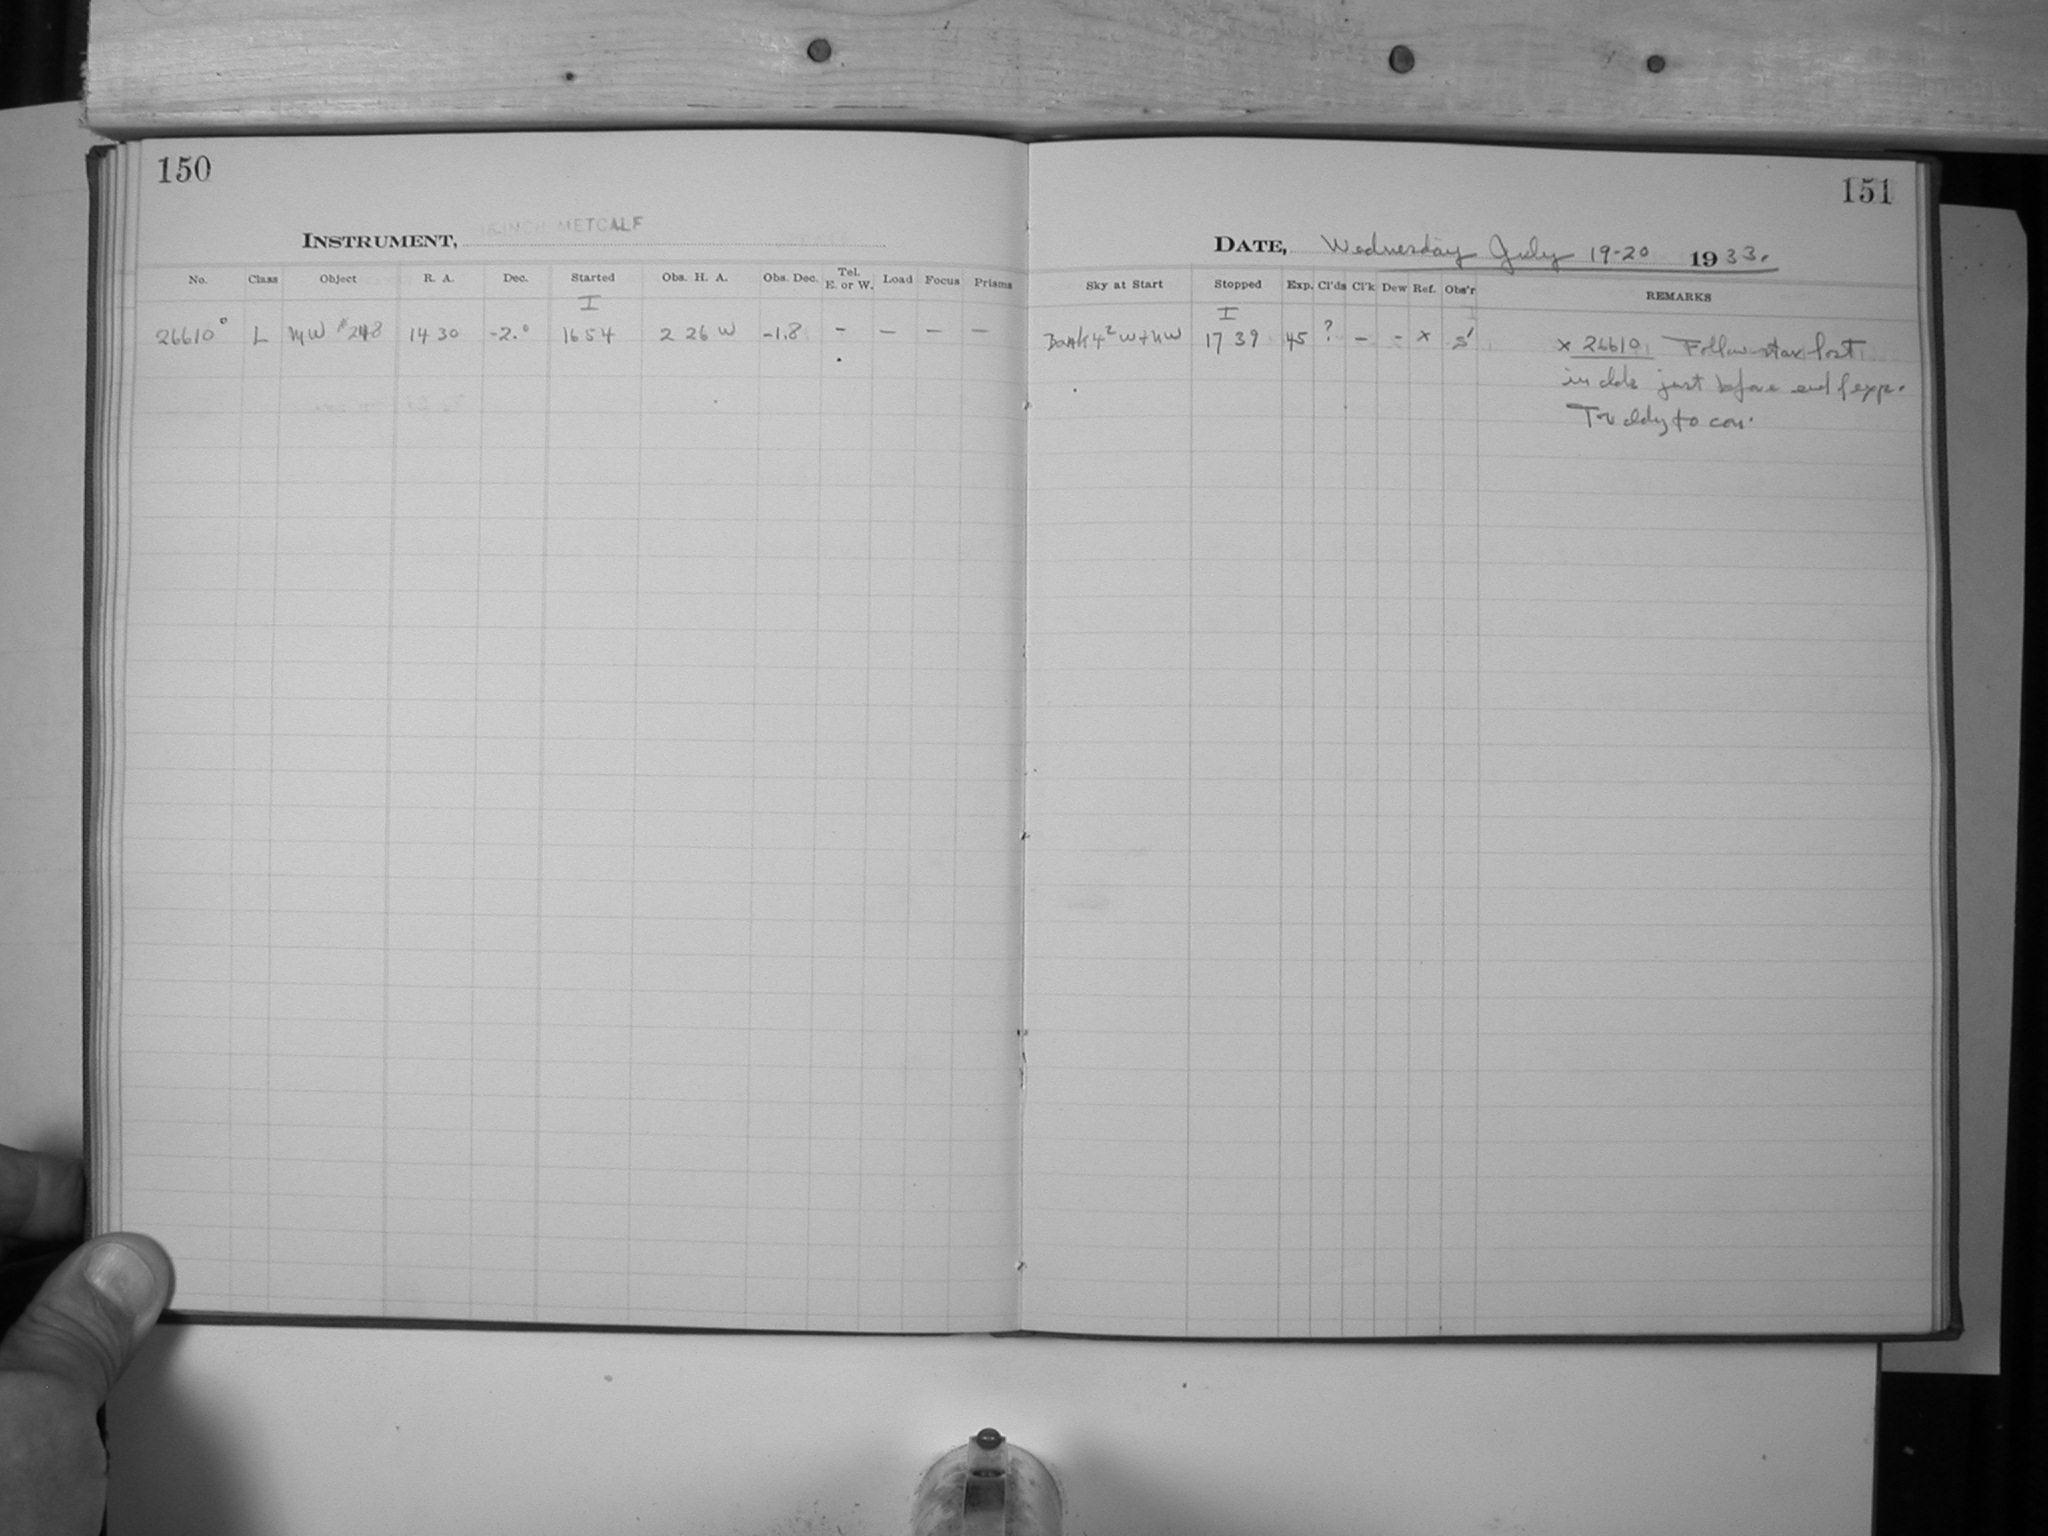 150
INSTRUMENT, 16 INCH METCALF
No. Class Object R. A. Dec. Started Obs. H. A. Obs. Dec. Tel. E. or W. Load Focus Prisms
I
26610° L MW #248 14 30 -2.° 16 54 2 26 W -1.8 - - - -
151
DATE, Wednesday July 19-20 1933.
Sky at Start Stopped Exp. Cl'ds Cl'k Dew Ref. Obs'r REMARKS
I
Bank 4² W + NW 17 39 45 ? - - x S' x 26610 Follow star lost
in clds just before end of exp.
Too cldy to con.